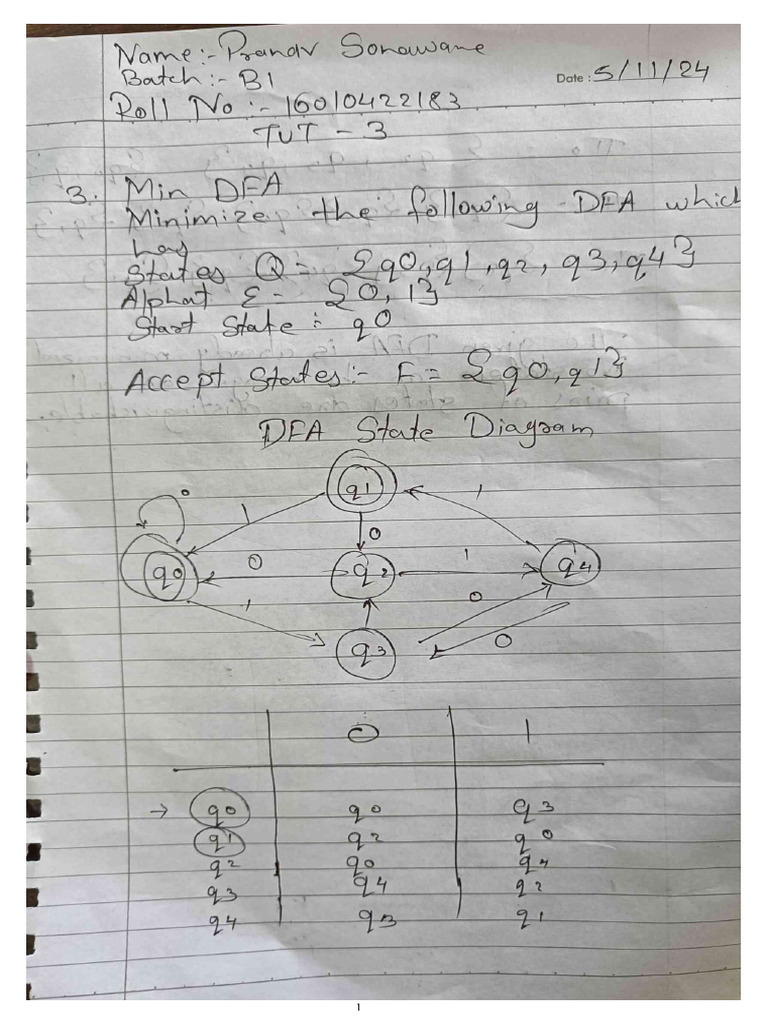 Name:- Pranav Sonawane
Batch:- B1
Date : 5/11/24
Roll No :- 16010422183
TUT - 3
3. Min DFA
Minimize the following DFA which
has
States Q = {q0, q1, q2, q3, q4}
Alphat Σ = {0, 1}
Start State : q0
Accept States:- F = {q0, q1}
DFA State Diagram
q1
0
1
1
0
q0
0
q2
1
q4
1
0
q3
0
0
1
→ q0 q0 q3
q1 q2 q0
q2 q0 q4
q3 q4 q2
q4 q3 q1
1